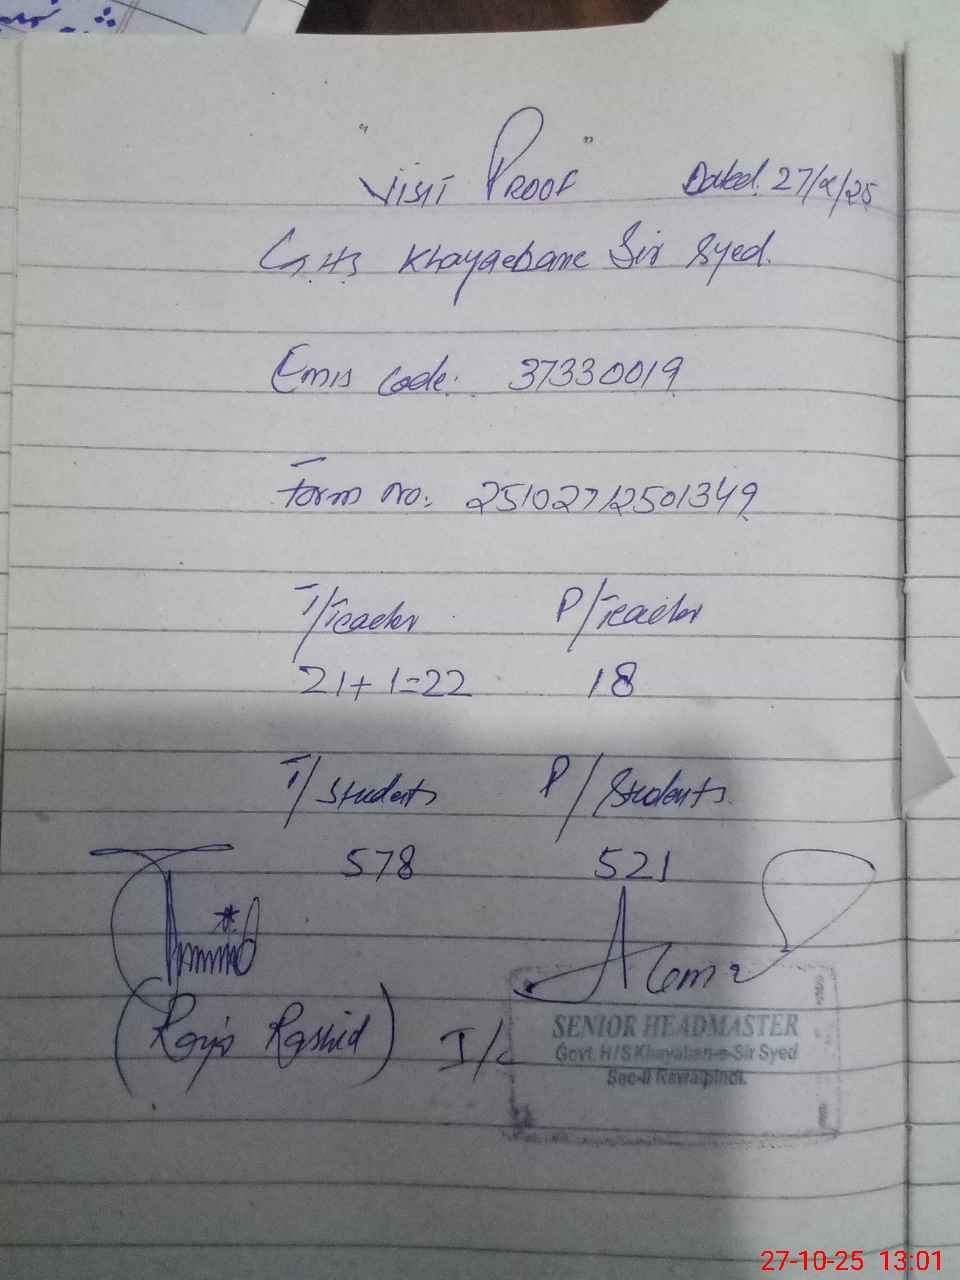 "Visit Proof" Dated. 27/x/25
G.H.S Khayaebane Sir Syed.
Emis Code: 37330019
Form no: 25102712501349
T/Teacher P/Teacher
21+1=22 18
T/Students P/Students
578 521
(Raja Rashid) I/c
SENIOR HEADMASTER
Govt. H/S Khayaban-e-Sir Syed
Sec-II Rawalpindi.
27-10-25 13:01